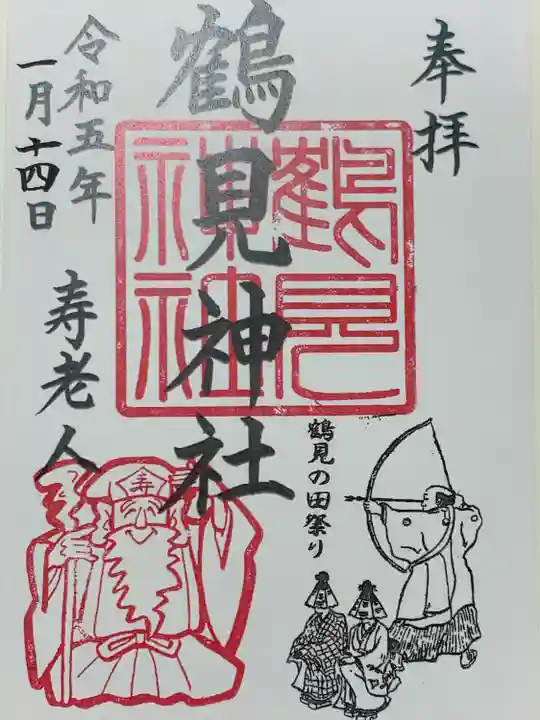 奉拝
鶴見神社
鶴見神社
令和五年
一月十四日
寿老人
鶴見の田祭り
寿